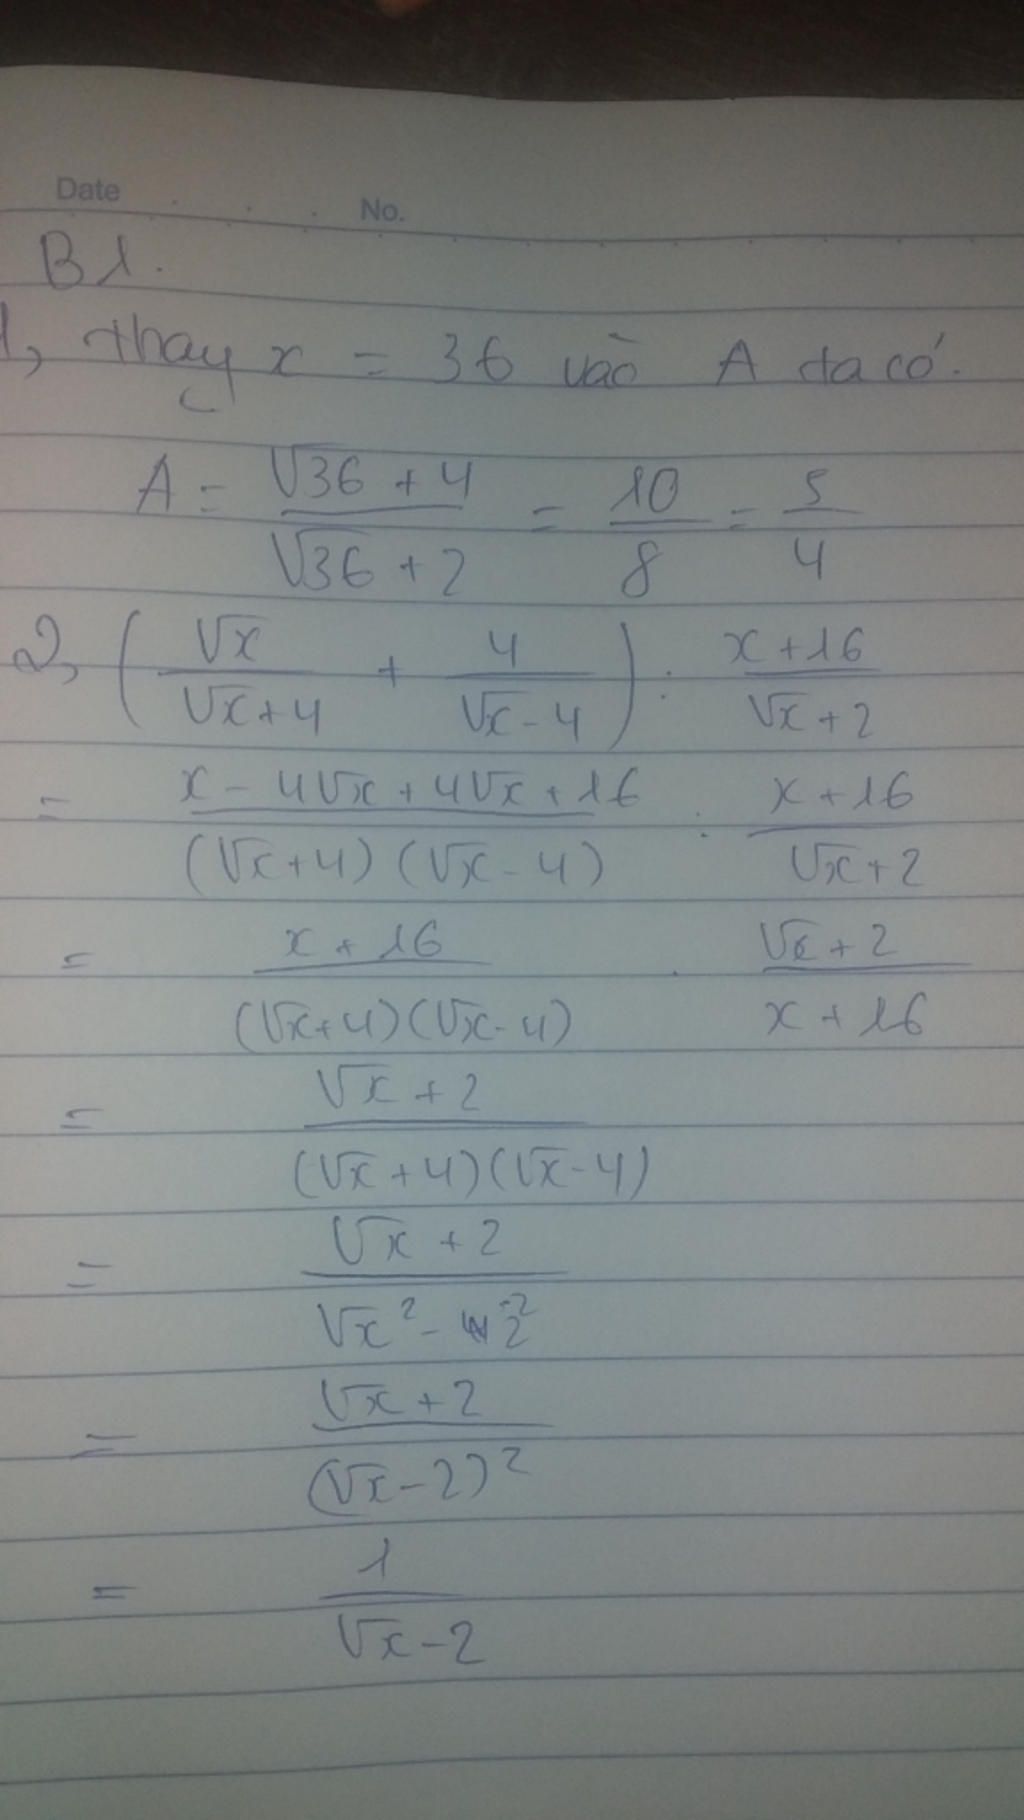 Date No.
B1.
1, thay x = 36 vào A ta có.
A = (√36 + 4)/(√36 + 2) = 10/8 = 5/4
2, (√x/(√x+4) + 4/(√x-4)) : (x+16)/(√x+2)
= (x - 4√x + 4√x + 16)/((√x+4)(√x-4)) : (x+16)/(√x+2)
= (x+16)/((√x+4)(√x-4)) . (√x+2)/(x+16)
= (√x+2)/((√x+4)(√x-4))
= (√x+2)/(√x² - 2²)
= (√x+2)/(√x-2)²
= 1/(√x-2)